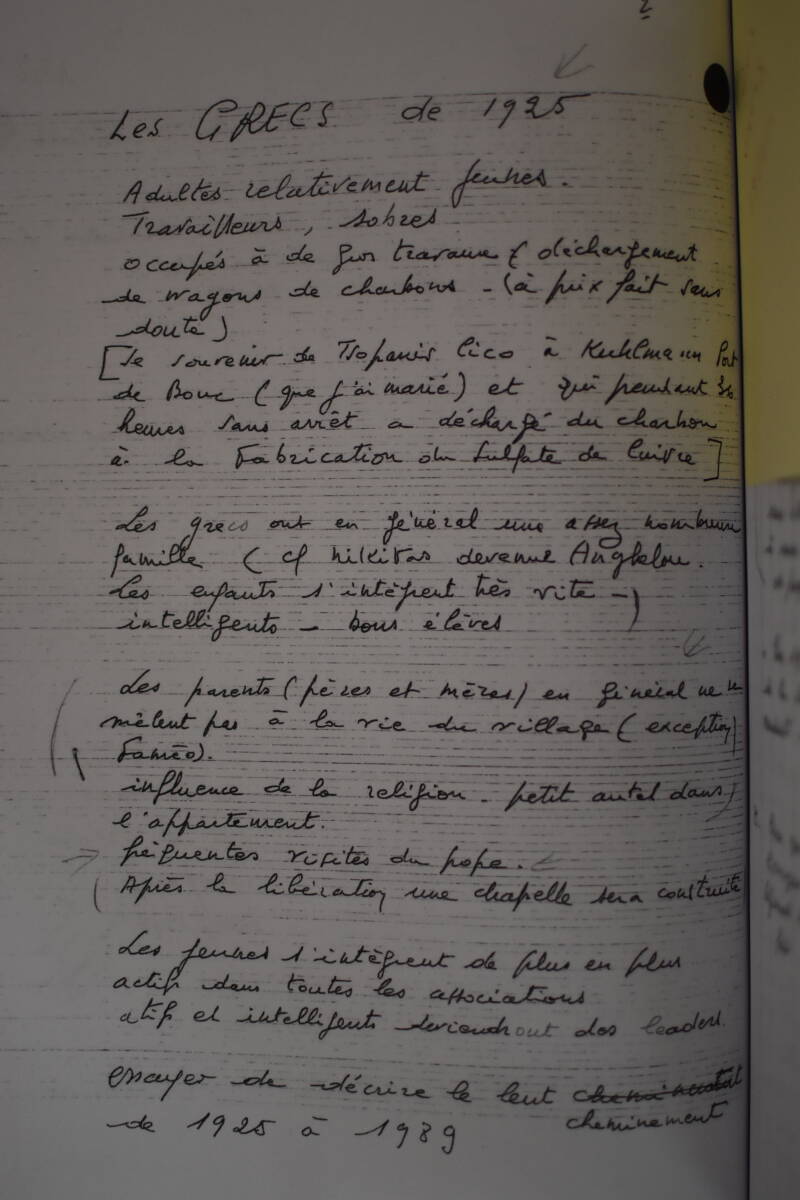 2
Les GRECS de 1925
Adultes relativement jeunes.
Travailleurs, sobres
occupés à de gros travaux (déchargement
de wagons de charbons - (à prix fait sans
doute)
[Se souvenir de Tsopanis Cico à Kuhlmann Port
de Bouc (que j'ai marié) et qui pendant
heures sans arrêt a déchargé du charbon
à la Fabrication du Sulfate de Cuivre]
Les grecs ont en général une assez nombreuse
famille (cf Nikitas devenue Anghelou.
Les enfants s'intègrent très vite -)
intelligents - bons élèves
Les parents (pères et mères) en général ne se
mêlent pas à la vie du village (exception
Faméo).
influence de la religion - petit autel dans
l'appartement.
fréquentes visites du pope.
Après la libération une chapelle sera construite
Les jeunes s'intègrent de plus en plus
actifs dans toutes les associations
atifs et intelligents deviendront des leaders
essayer de décrire le lent
cheminement
de 1925 à 1989